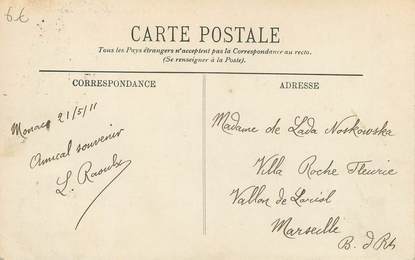 6€
CARTE POSTALE
Tous les Pays étrangers n'acceptent pas la Correspondance au recto.
(Se renseigner à la Poste).
CORRESPONDANCE
Monaco 21/5/11
Amical souvenir
L. Raoulx
ADRESSE
Madame de Lada Noskowska
Villa Roche Fleurie
Vallon de Loriol
Marseille
B. d Rh